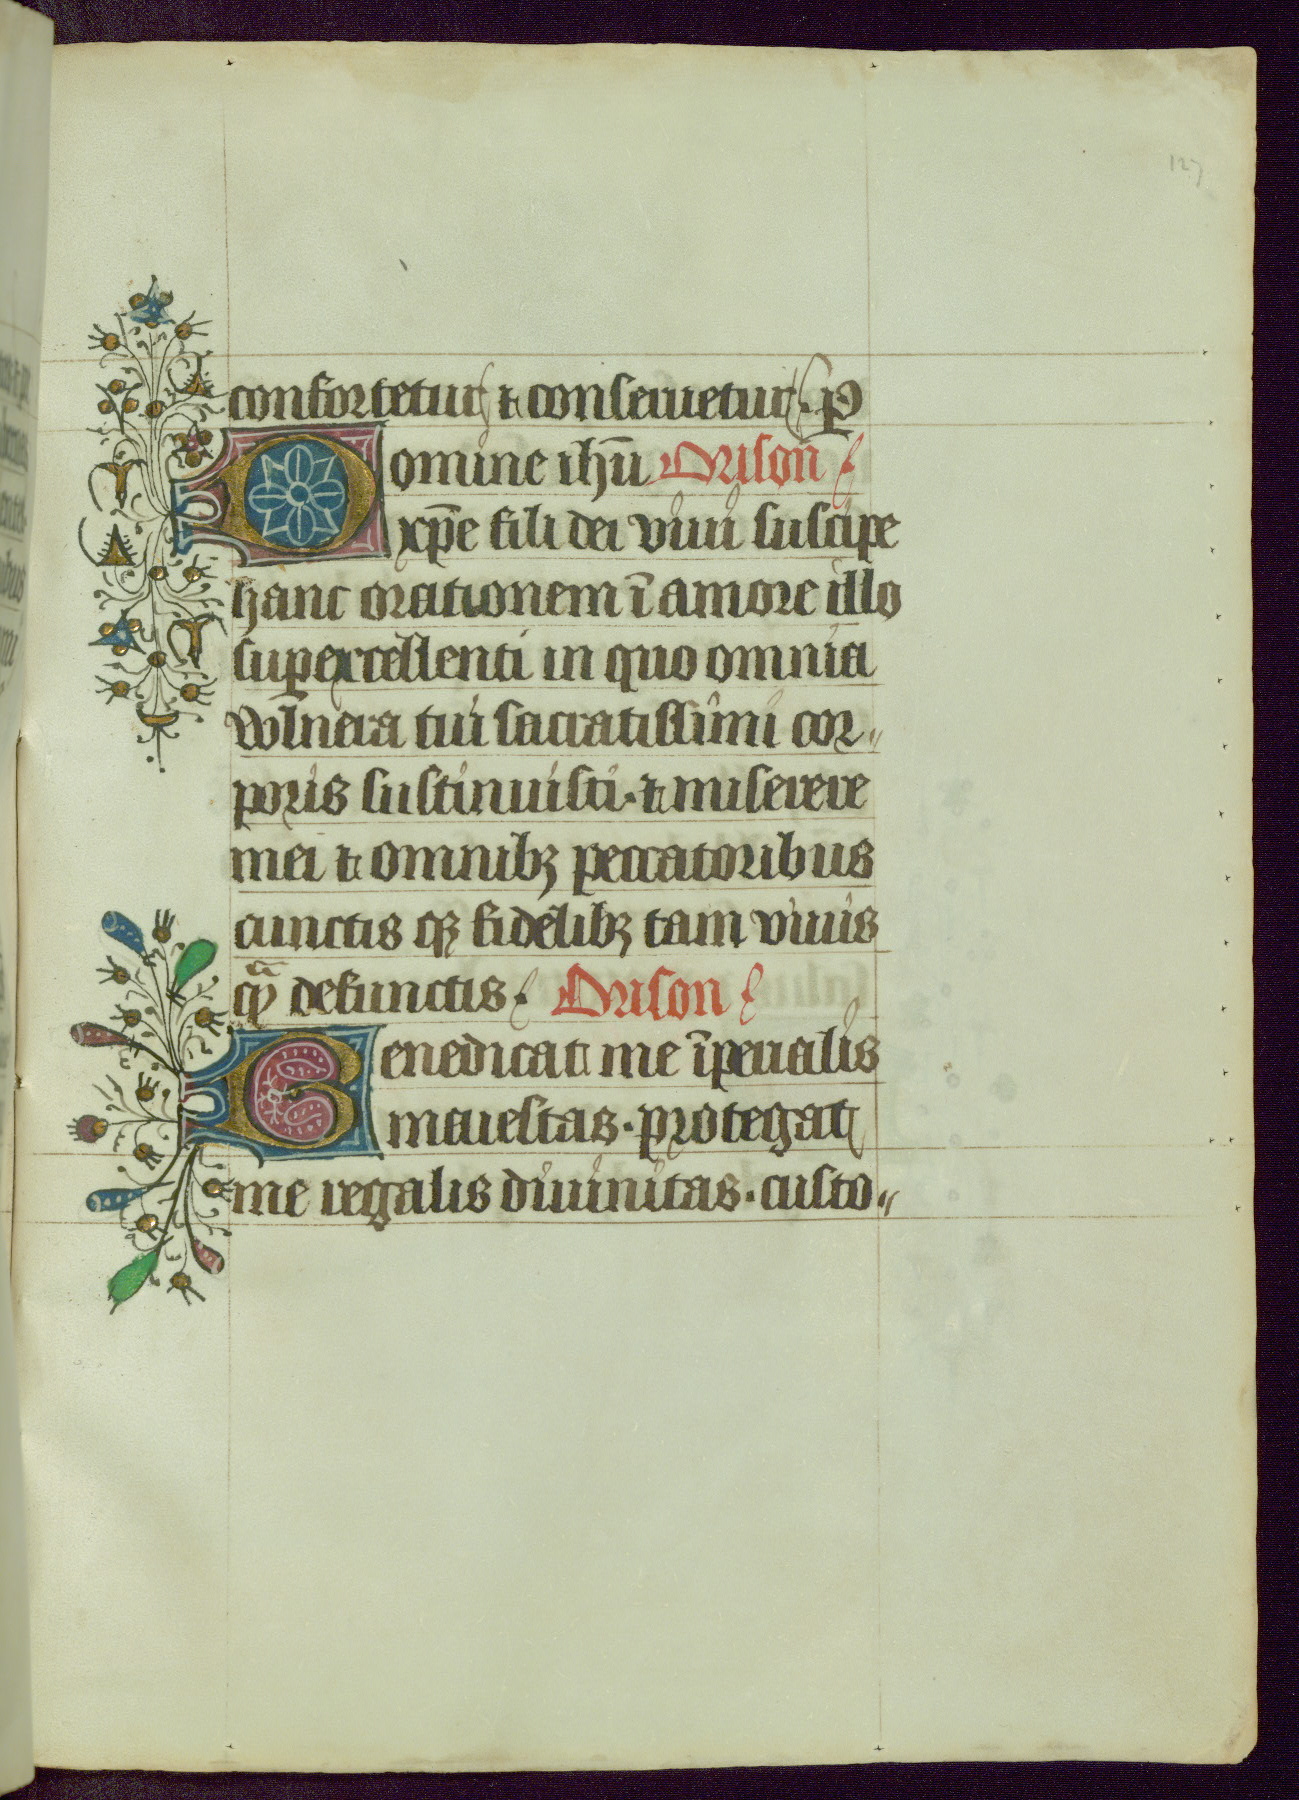 127
confortetur ⁊ conseruetur. p̲
Domine ihū Orison
xp̄e fili dei viui suscipe
hanc orationem ī amore illo
suꝑexcellenti in quo omnia
vulnera tui sacratissimi cor„
poris sustinuisti. ⁊ miserere
mei ⁊ omnibꝫ peccatoribus
cunctis qꝫ fidelibꝫ tam viuis
qͣ̄ defunctis Orison
Benedicat me īperialis
maiestas. protegat
me regalis diuinitas. custo„